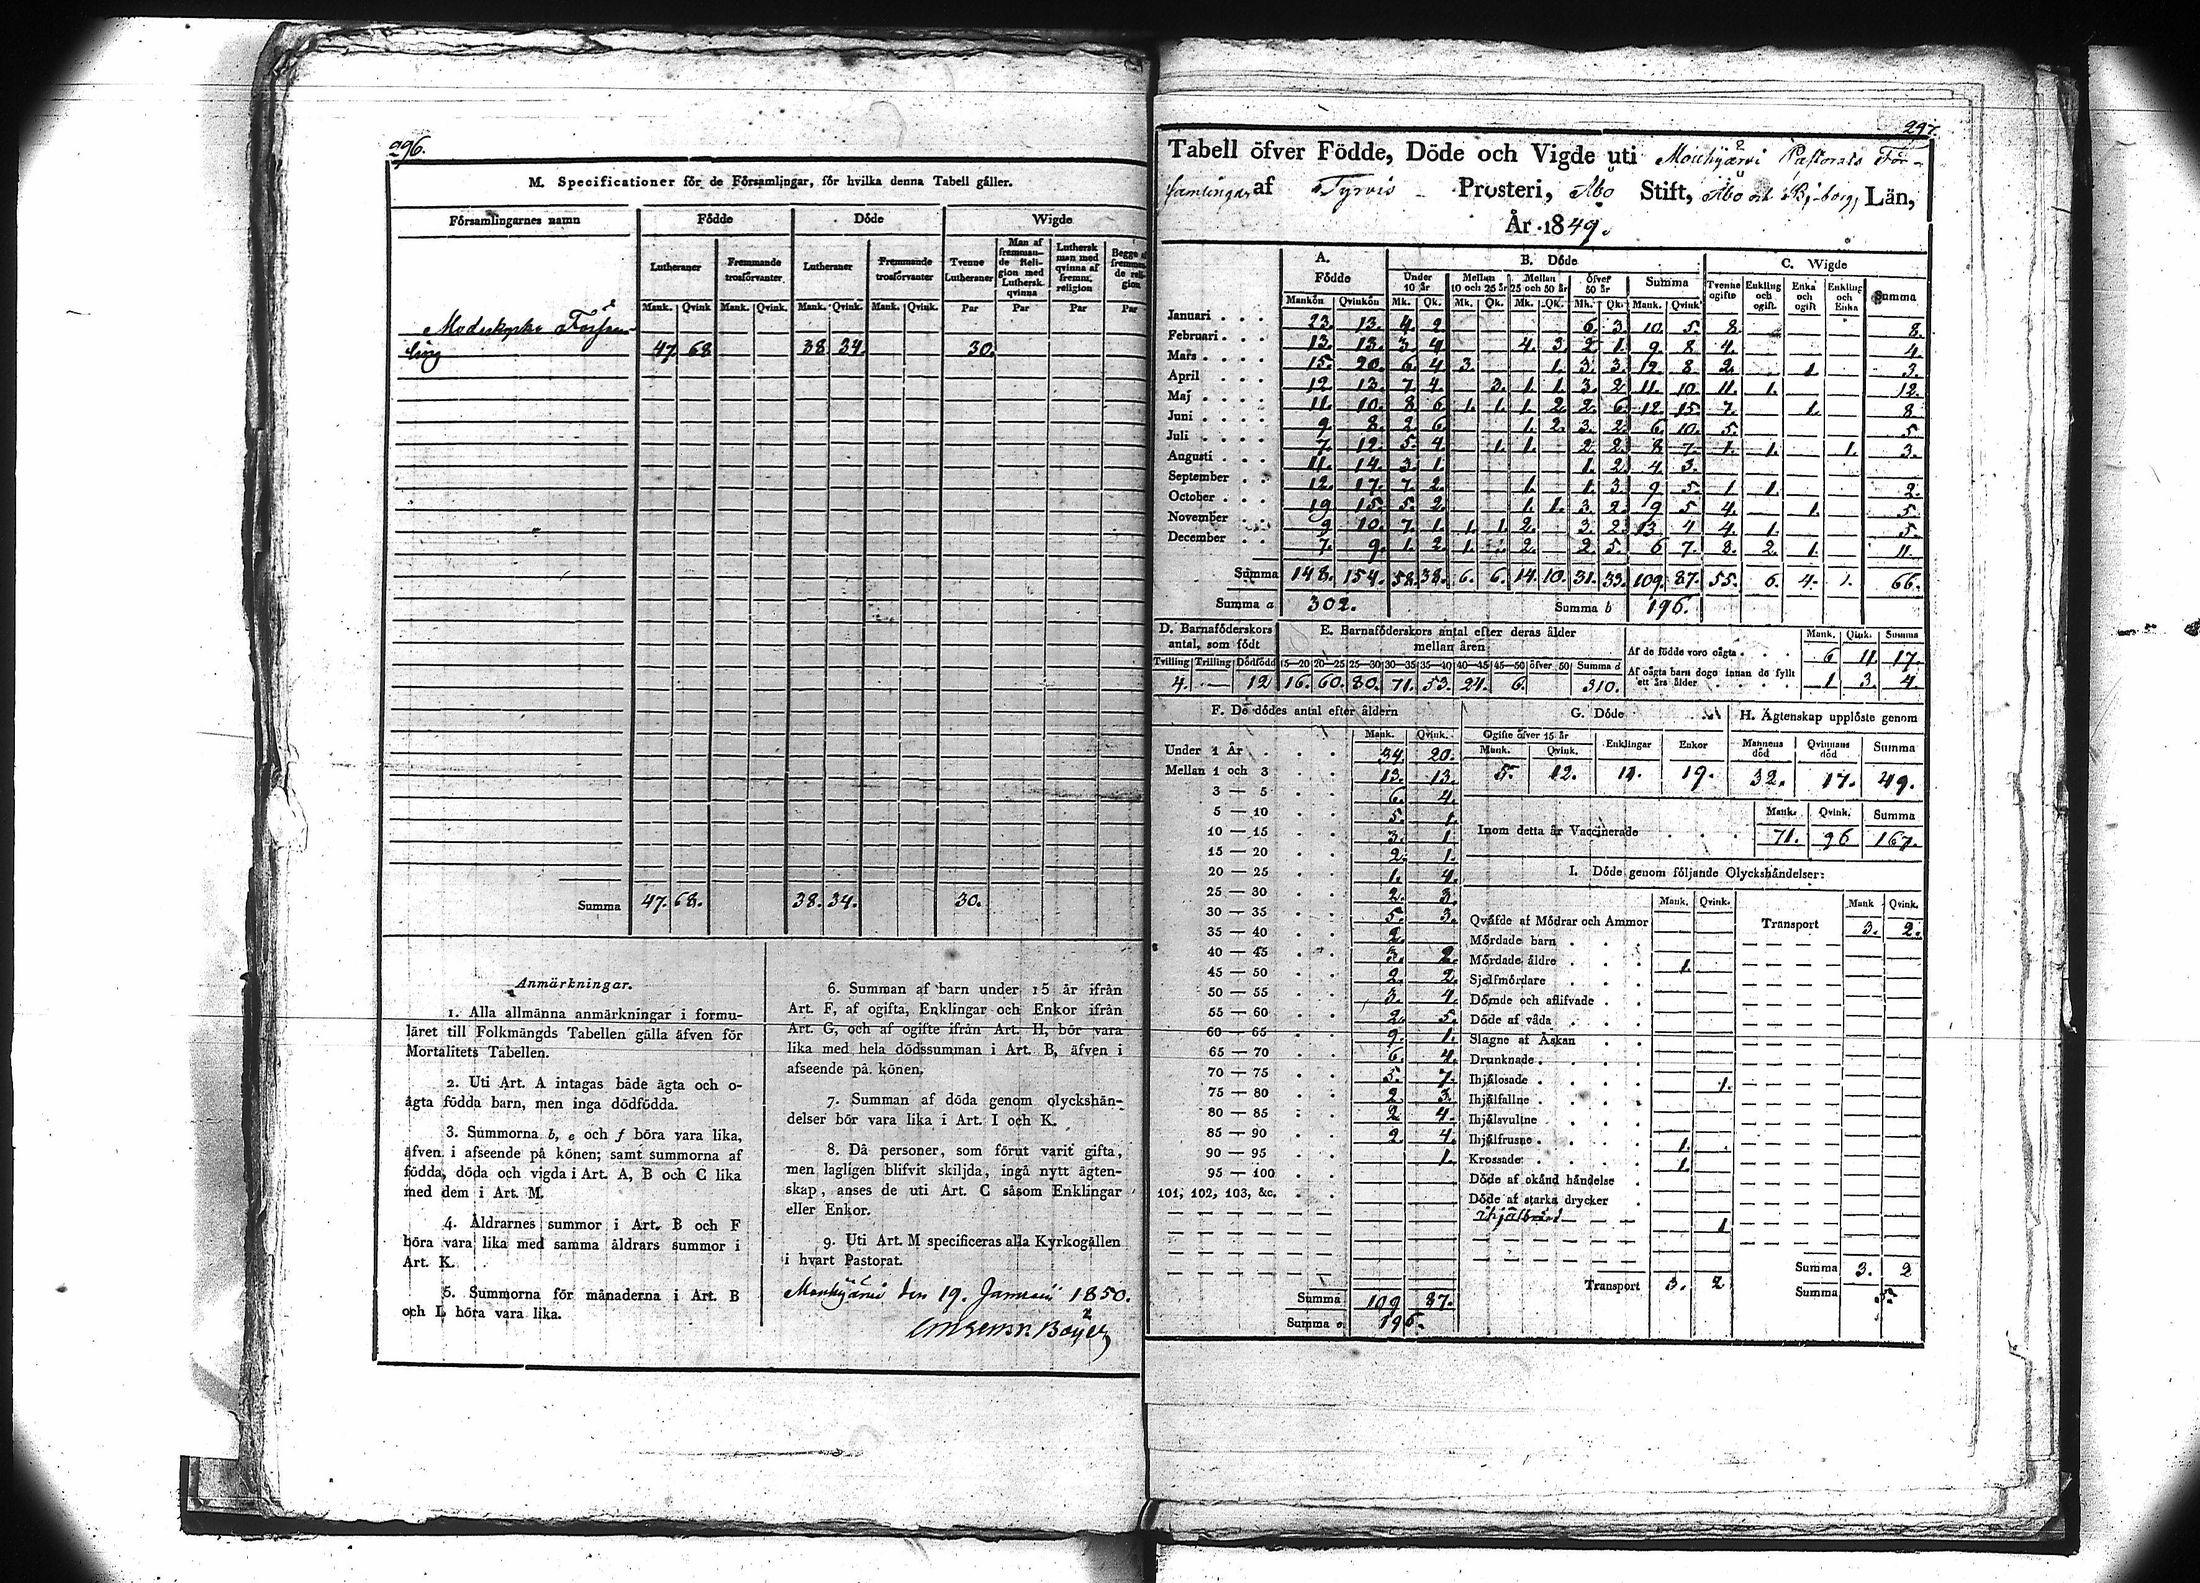 296.
M. Specificationer för de Församlingar, för hvilka denna Tabell gäller.
Församlingarnes namn | Födde | Döde | Wigde
Lutheraner | Fremmande trosförvanter | Lutheraner | Fremmande trosförvanter | Tvenne Lutheraner | Man af fremmande Religion med Luthersk qvinna | Luthersk man med qvinna af fremm. religion | Begge af fremmande religion
Mank. | Qvink | Mank. | Qvink. | Mank. | Qvink. | Mank. | Qvink. | Par | Par | Par | Par
Moderkyrko Församling | 47 | 68 | 38 | 34. | 30.
Summa | 47. | 68. | 38. | 34. | 30.
Anmärkningar.
1. Alla allmänna anmärkningar i formu-
läret till Folkmängds Tabellen gälla äfven för
Mortalitets Tabellen.
2. Uti Art. A intagas både ägta och o-
ägta födda barn, men inga dödfödda.
3. Summorna b, e och f böra vara lika,
äfven i afseende på könen; samt summorna af
födda, döda och vigda i Art. A, B och C lika
med dem i Art. M.
4. Åldrarnes summor i Art. B och F
böra vara lika med samma åldrars summor i
Art. K.
5. Summorna för månaderna i Art. B
och L böra vara lika.
6. Summan af barn under 15 år ifrån
Art. F, af ogifta, Enklingar och Enkor ifrån
Art. G, och af ogifte ifrån Art. H, bör vara
lika med hela dödssumman i Art. B, äfven i
afseende på könen.
7. Summan af döda genom olyckshän-
delser bör vara lika i Art. I och K.
8. Då personer, som förut varit gifta,
men lagligen blifvit skiljda, ingå nytt ägten-
skap, anses de uti Art. C såsom Enklingar
eller Enkor.
9. Uti Art. M specificeras alla Kyrkogällen
i hvart Pastorat.
Mouhijärvi den 19. Januarii 1850.
297.
Tabell öfver Födde, Döde och Vigde uti Mouhijärvi Pastorats För-
samlingar af Tyrvis Prosteri, Åbo Stift, Åbo och B;-borgs Län,
År 1849.
A. Födde | B. Döde | C. Wigde
Under 10 år | Mellan 10 och 25 år | Mellan 25 och 50 år | Öfver 50 år | Summa | Tvenne ogifte | Enkling och ogift. | Enka och ogift | Enkling och Enka | Summa
Mankön | Qvinkön | Mk. | Qk. | Mk. | Qk. | Mk. | Qk. | Mk. | Qk. | Mank. | Qvink
Januari | 23. | 13. | 4 | 2 | 6. | 3. | 10. | 5. | 8. | 8.
Februari | 13. | 13. | 3. | 4 | 4. | 3. | 2 | 1. | 9. | 8 | 4. | 4.
Mars | 15. | 20. | 6. | 4 | 3. | 1. | 3. | 3. | 12 | 8 | 2. | 1. | 3.
April | 12 | 13. | 7 | 4. | 3. | 1. | 1. | 3. | 2 | 11. | 10. | 11. | 1. | 12.
Maj | 11. | 10. | 8 | 6. | 1. | 1. | 1. | 2. | 2. | 6. | 12. | 15. | 7. | 1. | 8.
Juni | 9 | 8. | 2 | 6. | 1. | 2. | 3. | 2. | 6. | 10. | 5. | 5.
Juli | 7. | 12. | 5. | 4. | 1. | 1. | 2. | 2. | 8 | 7. | 1. | 1. | 1. | 3.
Augusti | 11. | 14. | 3. | 1. | 1. | 2. | 4. | 3.
September | 12. | 17. | 7. | 2. | 1. | 1. | 3. | 9. | 5. | 1. | 1. | 2.
October | 19 | 15. | 5. | 2. | 1. | 1. | 3. | 2. | 9 | 5 | 4. | 1. | 5.
November | 9 | 10. | 7. | 1. | 1. | 1. | 2. | 3. | 2. | 13. | 4 | 4. | 1. | 5.
December | 7. | 9. | 1. | 2. | 1. | 2. | 2. | 5. | 6 | 7. | 8. | 2. | 1. | 11.
Summa | 148. | 154. | 58. | 38. | 6. | 6. | 14. | 10. | 31. | 33. | 109. | 87. | 55. | 6. | 4. | 1. | 66.
Summa a | 302. | Summa b | 196.
D. Barnaföderskors antal, som födt | E. Barnaföderskors antal efter deras ålder mellan åren
Tvilling | Trilling | Dödfödd | 15—20 | 20—25 | 25—30 | 30—35 | 35—40 | 40—45 | 45—50 | öfver 50 | Summa d
4. | — | 12 | 16. | 60. | 80. | 71. | 53. | 24. | 6. | 310.
Mank. | Qink. | Summa
Af de födde voro oägta | 6 | 11. | 17.
Af oägta barn dogo innan de fyllt ett års ålder | 1. | 3. | 4.
F. De dödes antal efter åldern
Mank. | Qvink.
Under 1 År | 34. | 20.
Mellan 1 och 3 | 13. | 13.
3 — 5 | 6. | 4.
5 — 10 | 5. | 1.
10 — 15 | 3. | 1.
15 — 20 | 2. | 1.
20 — 25 | 1. | 4.
25 — 30 | 2. | 3.
30 — 35 | 5. | 3.
35 — 40 | 2.
40 — 45 | 3. | 2.
45 — 50 | 2. | 2.
50 — 55 | 3. | 4.
55 — 60 | 2. | 5.
60 — 65 | 9. | 1.
65 — 70 | 6. | 4.
70 — 75 | 5. | 7.
75 — 80 | 2 | 3.
80 — 85 | 2 | 4.
85 — 90 | 2 | 4.
90 — 95 | 1.
95 — 100
101, 102, 103, &c.
Summa | 109 | 87.
Summa e. | 196.
G. Döde
Ogifte öfver 15 år | Enklingar | Enkor
Mank. | Qvink.
5. | 12. | 11. | 19.
H. Ägtenskap upplöste genom
Mannens död | Qvinnans död | Summa
32. | 17. | 49.
Mank. | Qvink. | Summa
Inom detta år Vaccinerade | 71. | 96 | 167.
I. Döde genom följande Olyckshändelser:
Mank. | Qvink. | Mank | Qvink.
Qväfde af Mödrar och Ammor | Transport | 3. | 2.
Mördade barn
Mördade äldre | 1.
Sjelfmördare
Dömde och aflifvade
Döde af våda
Slagne af Åskan
Drunknade
Ihjälosade | 1.
Ihjälfallne
Ihjälsvultne
Ihjälfrusne | 1.
Krossade | 1.
Döde af okänd händelse
Döde af starka drycker
| 1
Transport | 3. | 2
Summa | 3. | 2
Summa | 5.